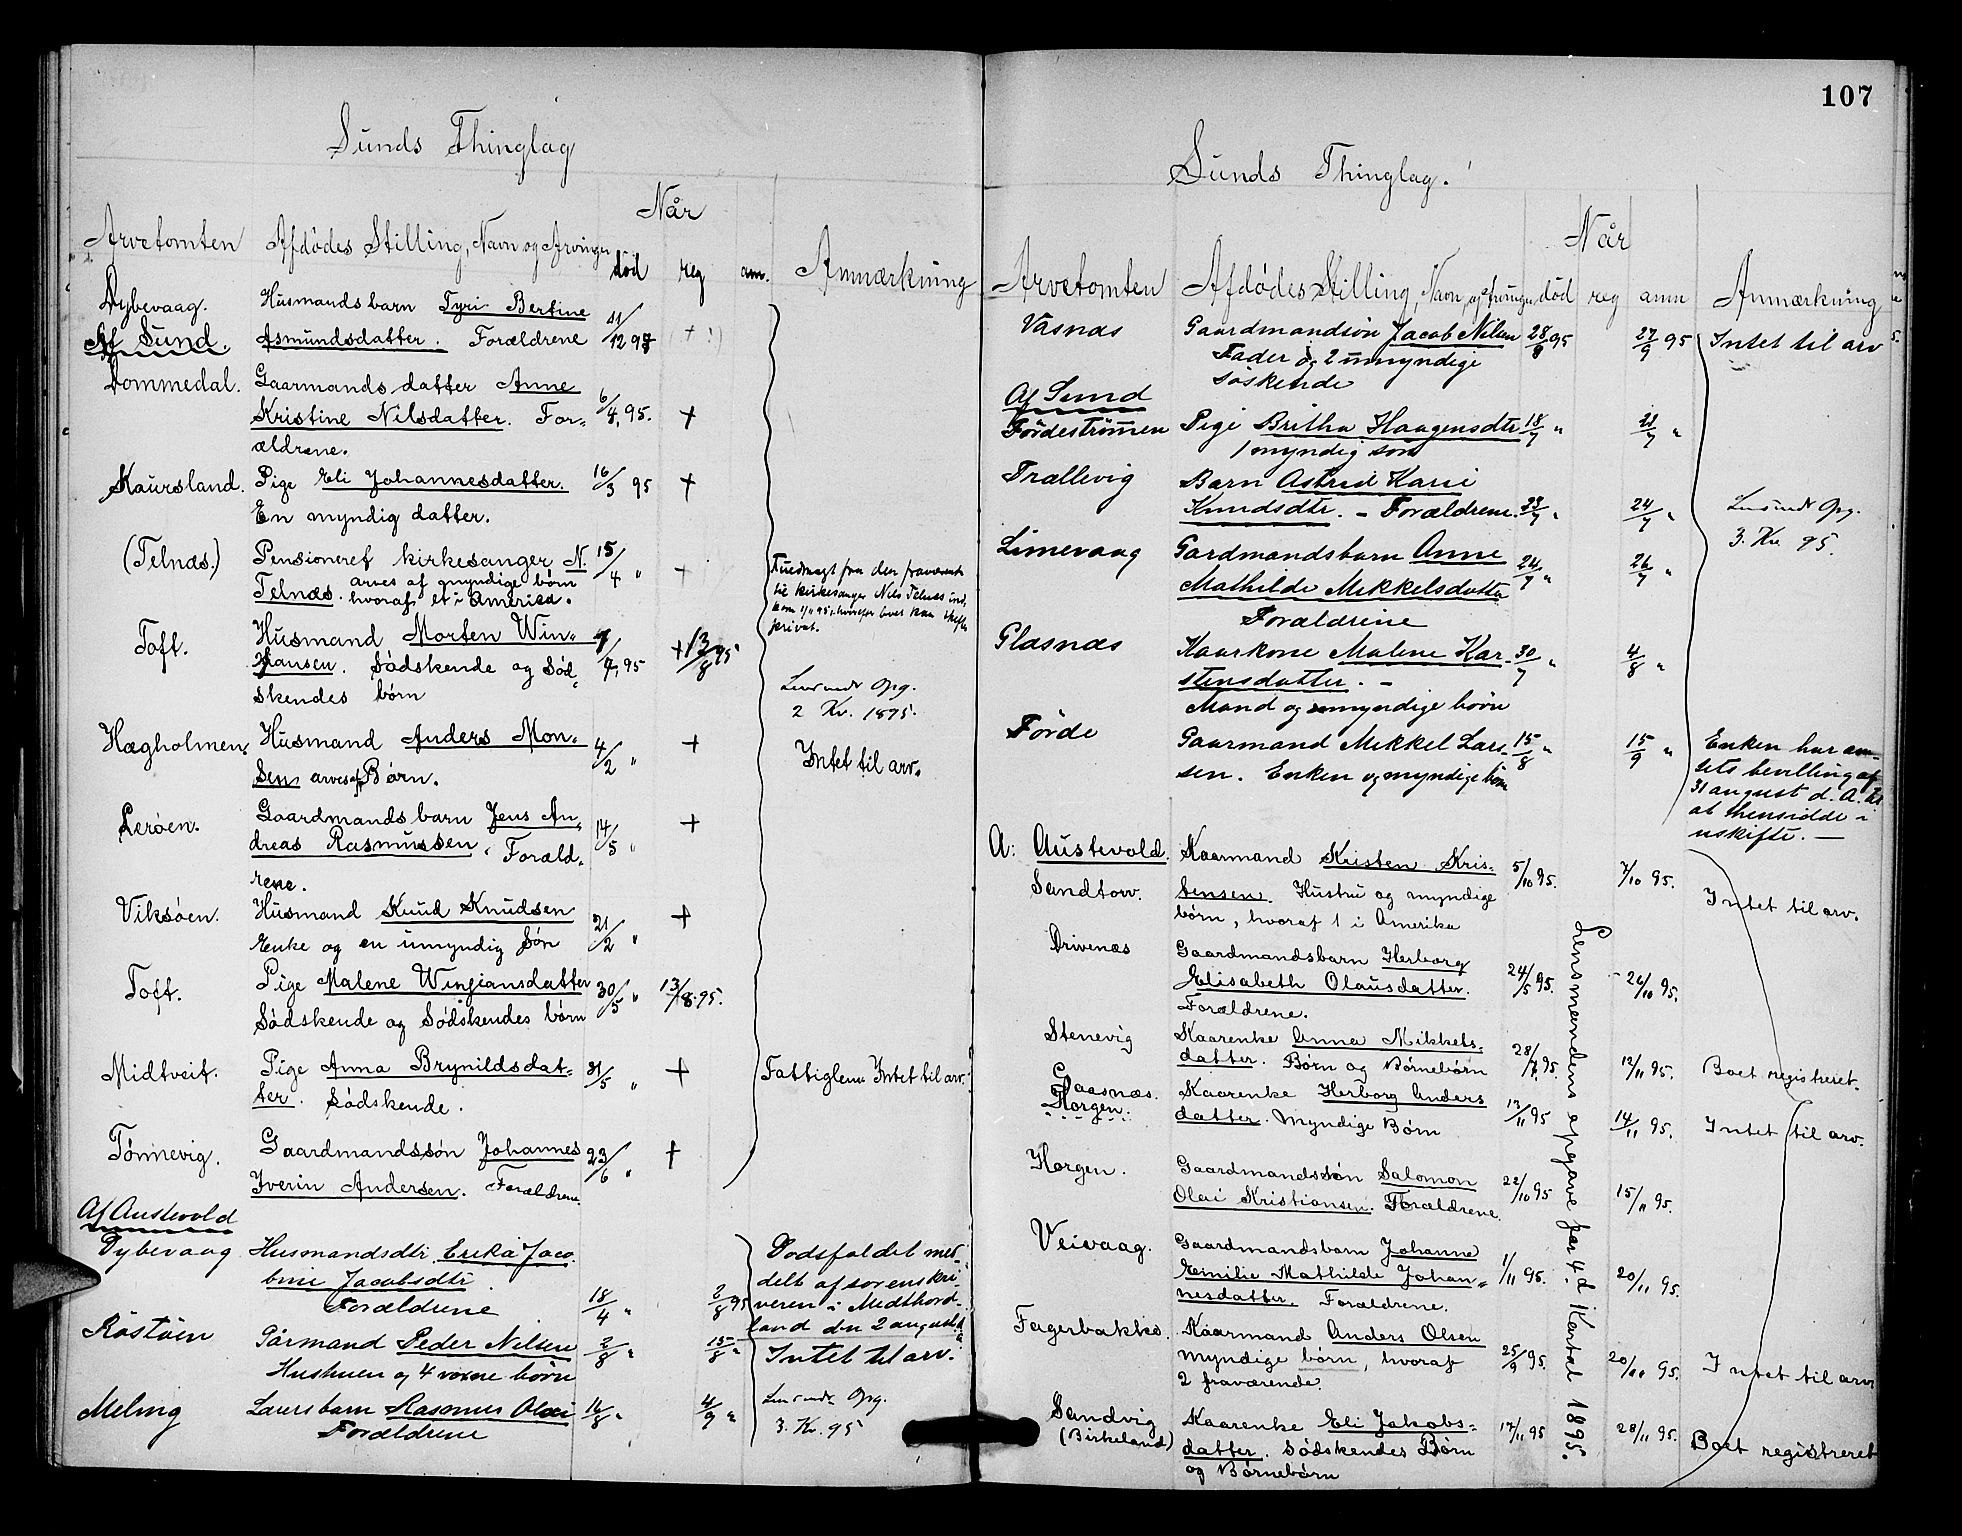 107
Sunds Thinglag
Når
Arvetomten Afdødes Stilling, Navn og Arvinger død reg anm. Anmærkning
Dybevaag. Husmandsbarn Tyri Bertine
Af Sund. Asmundsdatter. Forældrene 12 +
Dommedal. Gaarmandsdatter Anne
Kristine Nilsdatter. For- 6/4, 95. +
ældrene.
Kaursland. Pige Eli Johannesdatter. 16/3 95 +
En myndig datter.
(Telnæs.) Pensioneret kirkesanger N. 15/4 " +
Telnæs. arves af myndige børn
hvoraf et i Amerika.
Fuldmagt fra den fraværende
til kirkesanger Nils Telnæs
privat.
Toft. Husmand Morten Win- 7, 95 + 13/8 95
jiansen. Södskende og Söd-
skendes børn
Opg.
2 Kv. 1895.
Hægholmen. Husmand Anders Mon- 4/2 " +
sen arves af Børn. Intet til arv.
Lerøen. Gaardmandsbarn Jens An- 14/5 " +
dreas Rasmussen, Foræld-
rene.
Viksøen. Husmand Knud Knudsen 21/2 " +
Enke og en umyndig Søn
Toft. Pige Malene Winjiansdatter 30/5 " 13/8 95.
Södskende og Södskendes børn
Midtveit. Pige Anna Brynildsdat- 31/5 " + Fattiglem Intet til arv.
ter. Södskende.
Tønnevig. Gaardmandssøn Johannes 23/6 " +
Iverin Andersen. Forældrene
Af Austevold
Dybevaag Husmandsdtr. Erika Jaco-
bine Jacobsdtr
Forældrene 18/4 " 2/8 95
Dødsfaldet med-
delt af sorenskri-
veren i Midthord-
land den 2 august
Röstöen Gårmand Peder Nilsen 2/8 " 15/8 " Intet til arv.
Hustruen og 4 voxne børn
Meling barn Rasmus Olai 14/8 " 4/9 " Opg.
Forældrene 3. Kv. 95
Sunds Thinglag.
Når
Arvetomten Afdødes Stilling, Navn, og Arvinger død reg anm Anmærkning
Vasnæs Gaardmandsøn Jacob Nilsen 28/8 95 27/9 95 Intet til arv
Fader og 2 umyndige
söskende
Af Sund
Fördestrømmen Pige Britha Haagensdtr 18/7 " 22/7 "
1 myndig søn
Trællevig Barn Astrid Karie
Knudsdtr. - Forældrene 23/7 " 24/7 "
Opg.
3. Kv 95.
Limevaag Gardmandsbarn Anne 24/7 " 26/7 "
Mathilde Mikkelsdatter
Forældrene
Glasnæs Kaarkone Malene Kar- 30/7 " 4/8 "
stensdatter. -
Mand og myndige børn
Förde Gaarmand Mikkel Lars- 15/8 " 15/9 "
sen. Enken og myndige børn
Enken har am-
sets bevilling af
31 august d. A. til
at hensidde i
uskifte. -
A: Austevold. Kaarmand Kristen Kris- 5/10 95. 7/10 95.
Sandtorv. tensen. Hustru og myndige Intet til arv.
børn, hvoraf 1 i Amerika
Drivenæs Gaardmandsbarn Herborg
Elisabeth Olausdatter. 24/5 95. 26/10 95.
Forældrene.
Stenevig Kaarenke Anna Mikkels- 28/7, 95. 12/11 95. Boet registreret.
datter. Børn og Børnebørn
Gaasnæs. Kaarenke Herborg Anders 13/11 95 14/11 95. Intet til arv.
Horgen. datter. Myndige Børn
Horgen. Gaardmandssøn Salomon 22/10 95 15/11 95.
Olai Kristiansen. Forældrene.
Veivaag. Gaardmandsbarn Johanne
Emilie Mathilde Johan- 1/11 95. 20/11 95.
nesdatter. Forældrene.
Fagerbakke. Kaarmand Anders Olsen
myndige børn, hvoraf 25/9 95. 20/11 95. Intet til arv
2 fraværende.
Sandvig Kaarenke Eli Jakobs- 17/11 95 28/11 95. Boet registreret
(Birkeland) datter. Södskendes Børn
og Børnebørn
Lensmandens opgave for 4d Kvartal 1895.